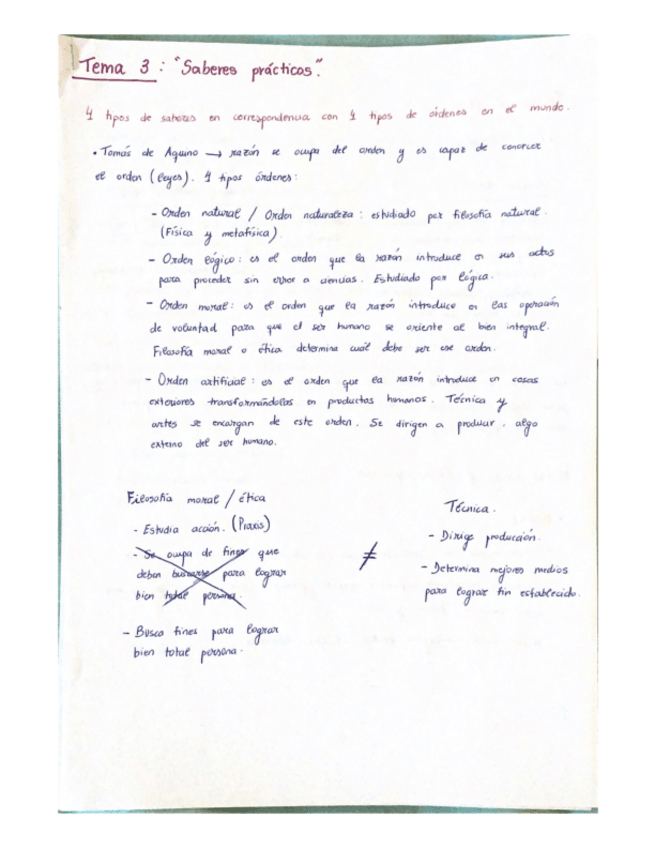 Tema 3: "Saberes prácticos".
4 tipos de saberes en correspondencia con 4 tipos de órdenes en el mundo.
• Tomás de Aquino → razón se ocupa del orden y es capaz de conocer
el orden (leyes). 4 tipos órdenes:
- Orden natural / Orden naturaleza: estudiado por filosofía natural.
(Física y metafísica).
- Orden lógico: es el orden que la razón introduce en sus actos
para proceder sin error a ciencias. Estudiado por lógica.
- Orden moral: es el orden que la razón introduce en las operación
de voluntad para que el ser humano se oriente al bien integral.
Filosofía moral o ética determina cuál debe ser ese orden.
- Orden artificial: es el orden que la razón introduce en cosas
exteriores transformándolas en productos humanos. Técnica y
artes se encargan de este orden. Se dirigen a producir. algo
externo del ser humano.
Filosofía moral / ética
- Estudia acción. (Praxis)
- Se ocupa de fines que
deben buscarse para lograr
bien total persona.
- Busca fines para lograr
bien total persona.
≠
Técnica.
- Dirige producción.
- Determina mejores medios
para lograr fin establecido.